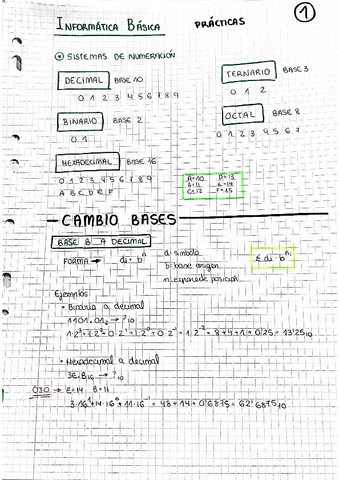 INFORMÁTICA BÁSICA PRÁCTICAS 1
SISTEMAS DE NUMERACIÓN
DECIMAL BASE 10
0 1 2 3 4 5 6 7 8 9
TERNARIO BASE 3
0 1 2
BINARIO BASE 2
0 1
OCTAL BASE 8
0 1 2 3 4 5 6 7
HEXADECIMAL BASE 16
0 1 2 3 4 5 6 7 8 9
A B C D E F
A=10 D=13
B=11 E=14
C=12 F=15
CAMBIO BASES
BASE B A DECIMAL
FORMA → di · bⁿ
d: símbolo
b: base origen
n: exponente posición
Σ di · bⁿⁱ
Ejemplos
• Binario a decimal
1101.01₂ → ?₁₀
1·2³+1·2²+0·2¹+1·2⁰+0·2⁻¹+1·2⁻² = 8+4+1+0'25 = 13'25₁₀
• Hexadecimal a decimal
3E.B₁₆ → ?₁₀
OJO → E=14, B=11
3·16¹+14·16⁰+11·16⁻¹ = 48+14+0'6875 = 62'6875₁₀